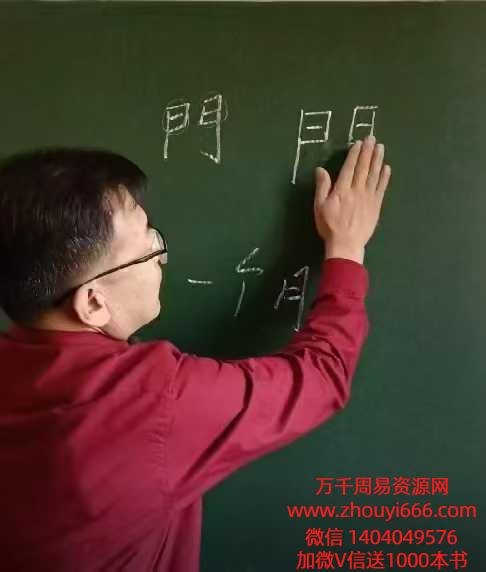 門 門
一个月
万千周易资源网
www.zhouyi666.com
微信 1404049576
加微V信送1000本书